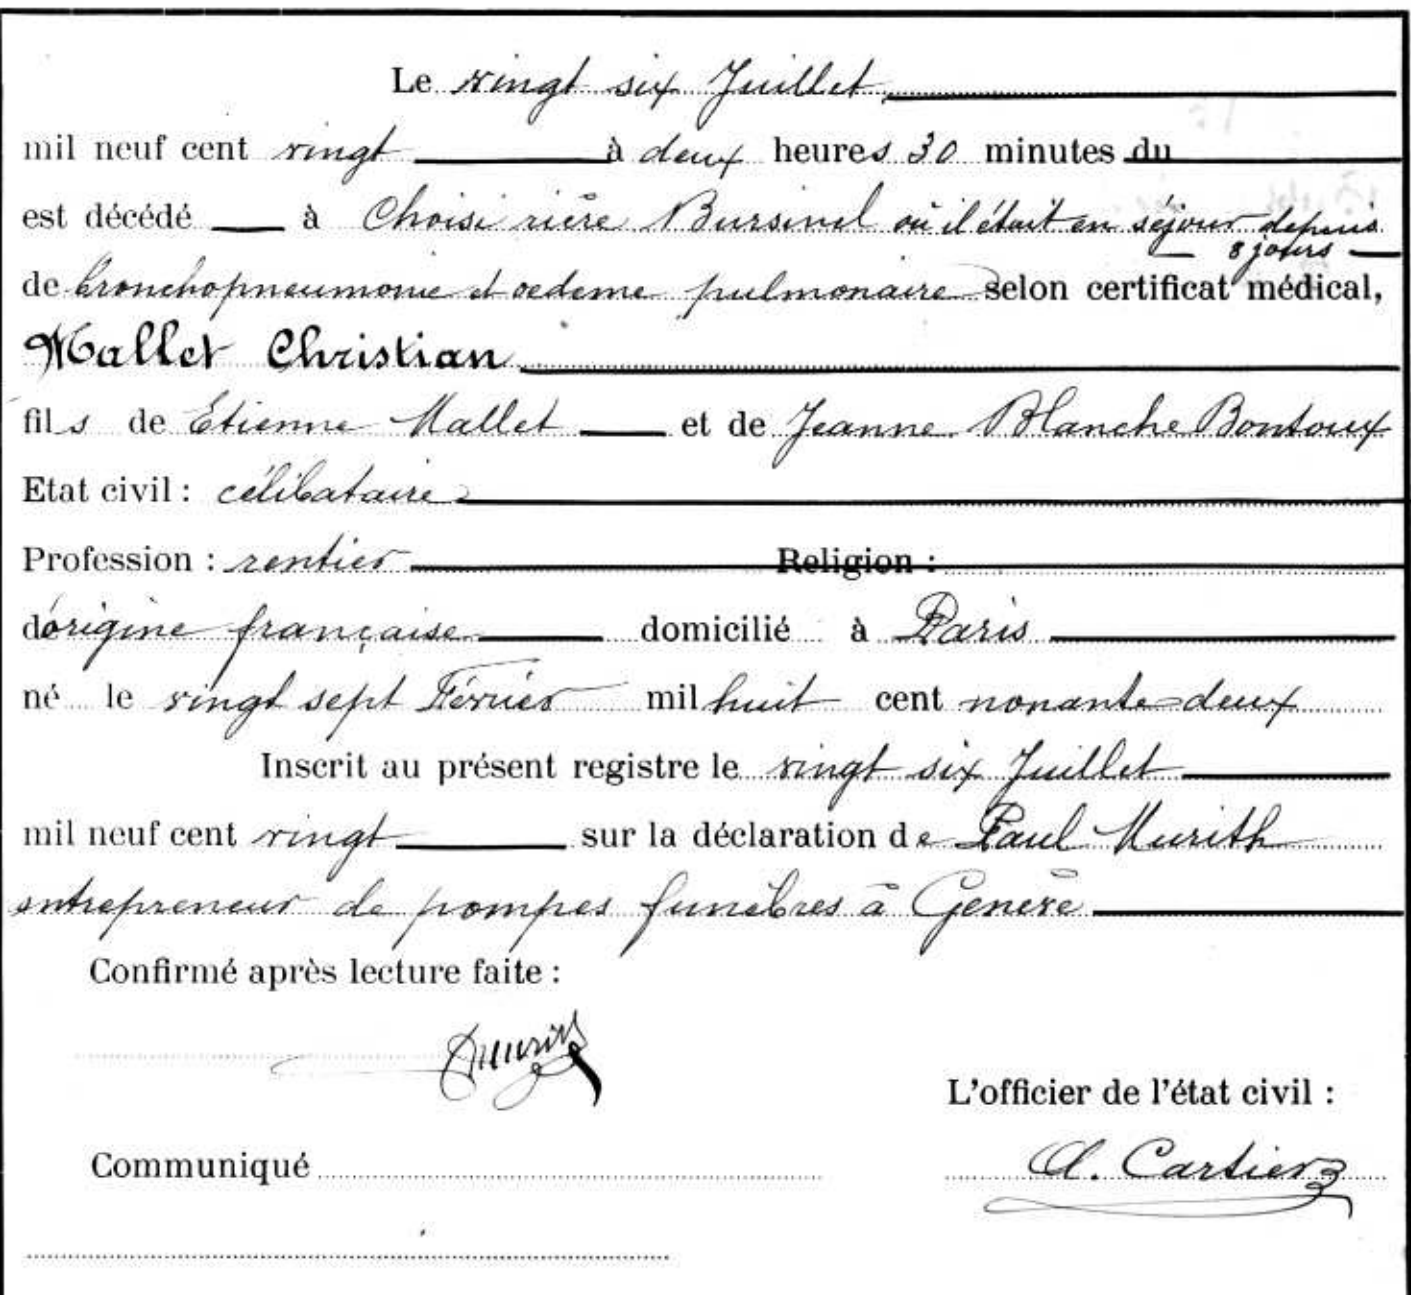 Le vingt six Juillet
mil neuf cent vingt à deux heures 30 minutes du
est décédé à Choisi rière Bursinel où il était en séjour depuis
8 jours
de bronchopneumonie et oedeme pulmonaire selon certificat médical,
Mallet Christian
fils de Etienne Mallet et de Jeanne Blanche Bontoux
Etat civil : célibataire
Profession : rentier Religion :
d'origine française domicilié à Paris
né le vingt sept Février mil huit cent nonante-deux
Inscrit au présent registre le vingt six Juillet
mil neuf cent vingt sur la déclaration de Paul Murith
entrepreneur de pompes funèbres à Genève
Confirmé après lecture faite :
Murith
L'officier de l'état civil :
Communiqué
A. Cartier